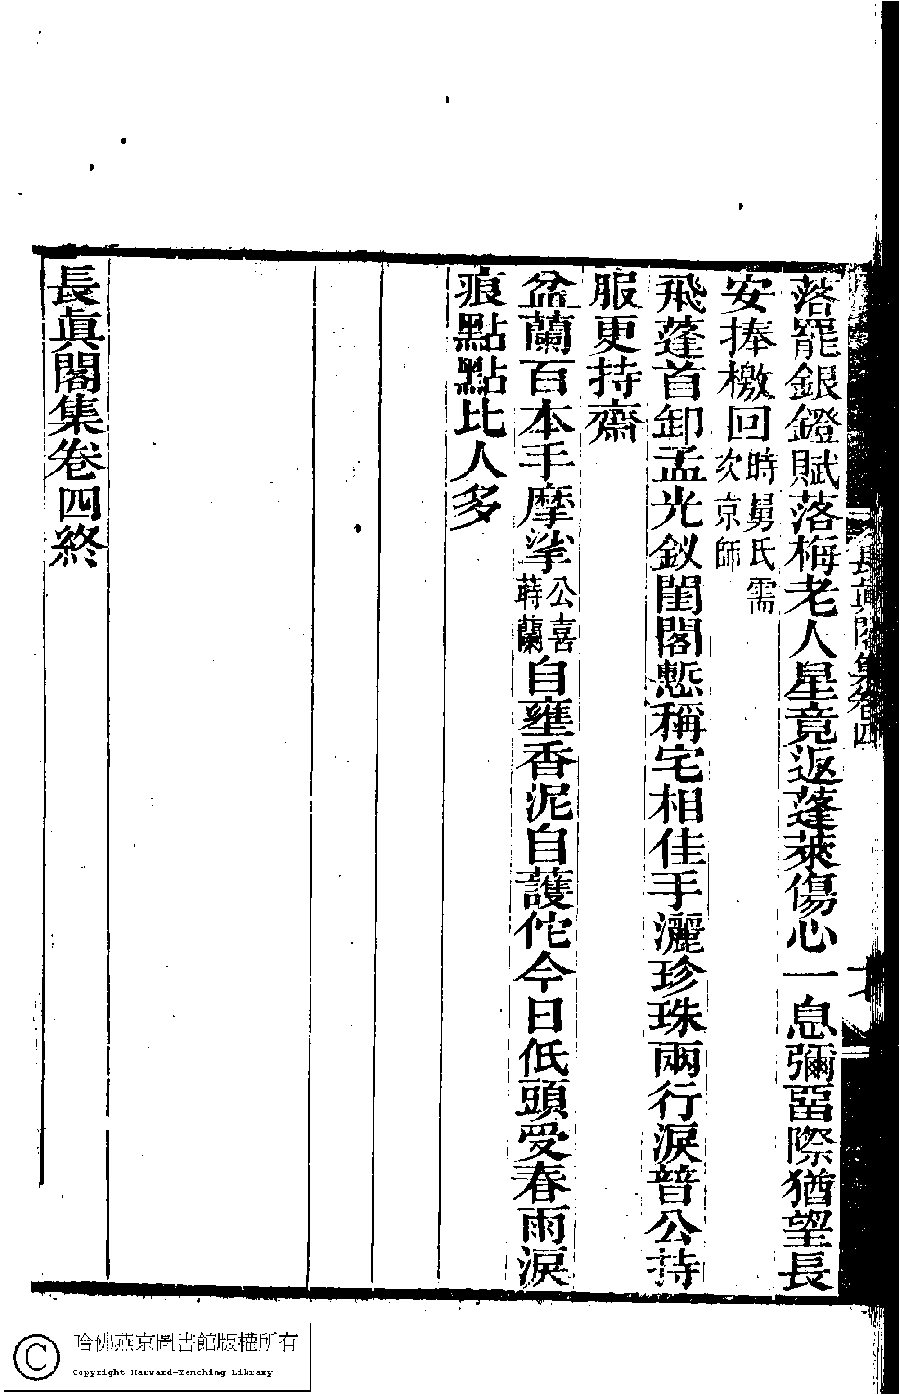 落罷銀鐙賦落梅老人星竟返蓬萊傷心一息彌畱際猶望長
安捧檄回時舅氏需次京師
飛蓬首卸孟光釵閨閣慙稱宅相佳手灑珍珠兩行淚普公持
服更持齋
盆蘭百本手摩挲公喜蒔蘭自壅香泥自護佗今日低頭受春雨淚
痕點點比人多
長眞閣集卷四終
長眞閣集卷四
哈佛燕京圖書館版權所有
Copyright Harvard-Yenching Library